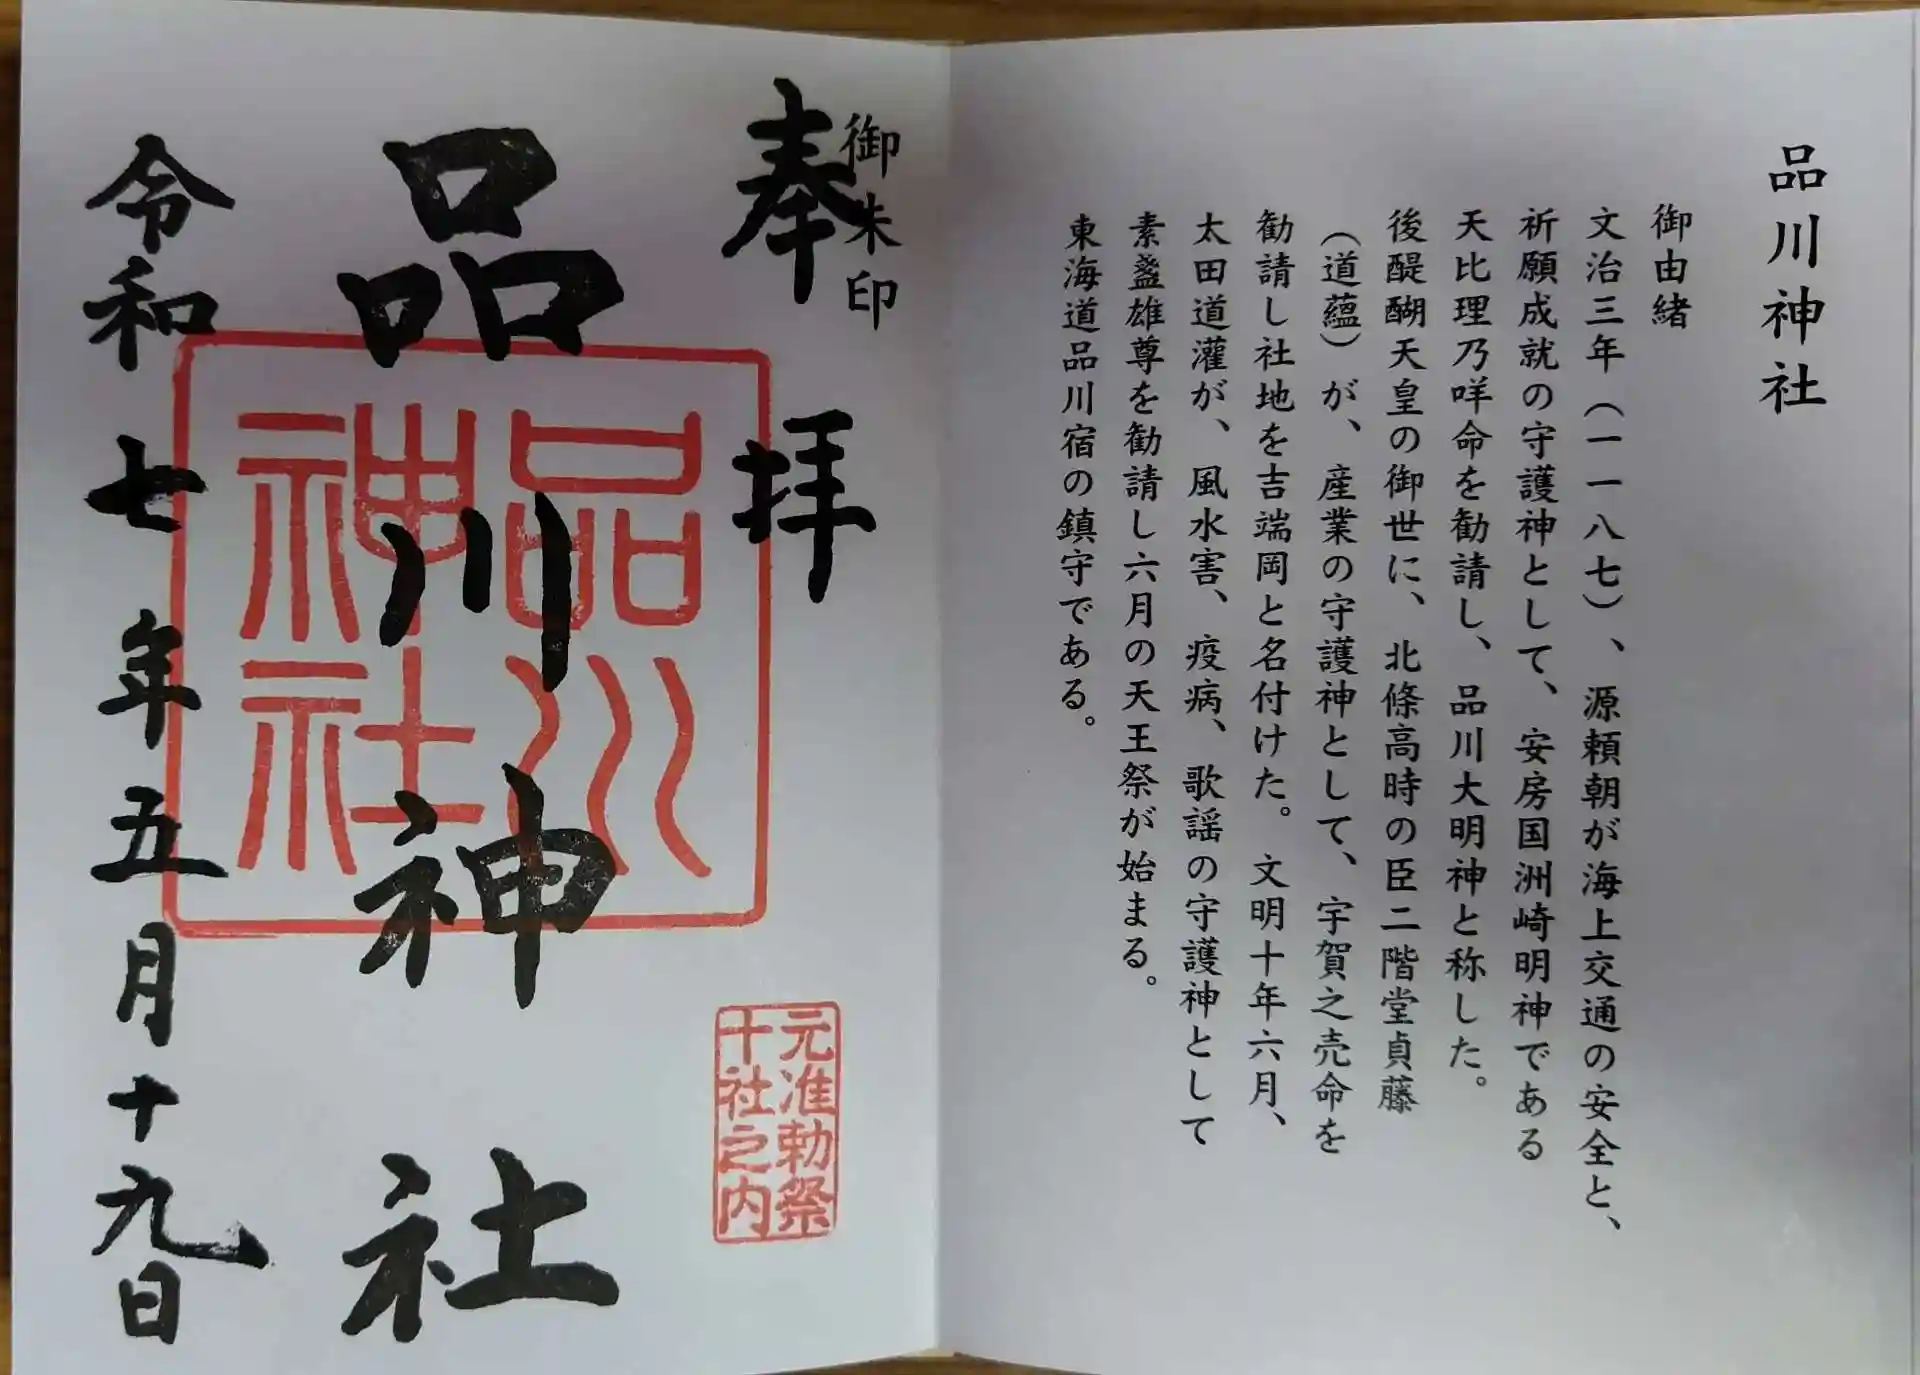 品川神社
御由緒
文治三年（一一八七）、源頼朝が海上交通の安全と、
祈願成就の守護神として、安房国洲崎明神である
天比理乃咩命を勧請し、品川大明神と称した。
後醍醐天皇の御世に、北條高時の臣二階堂貞藤
（道蘊）が、産業の守護神として、宇賀之売命を
勧請し社地を吉端岡と名付けた。文明十年六月、
太田道灌が、風水害、疫病、歌謡の守護神として
素盞雄尊を勧請し六月の天王祭が始まる。
東海道品川宿の鎮守である。
御朱印
奉拝
元准勅祭
十社之内
品川神社
品川
神社
令和七年五月十九日